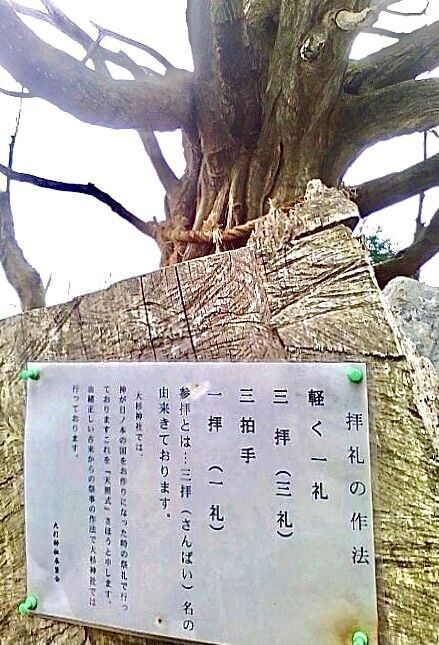 拝礼の作法
軽く一礼
三拝（三礼）
三拍手
一拝（一礼）
参拝とは…三拝（さんぱい）名の
由来きております。
大杉神社では、
神が日ノ本の国をお作りになった時の祭礼で行っ
ておりますこれを『天照式』さほうと申します。
由緒正しい古来からの祭事の作法で大杉神社では
行っております。